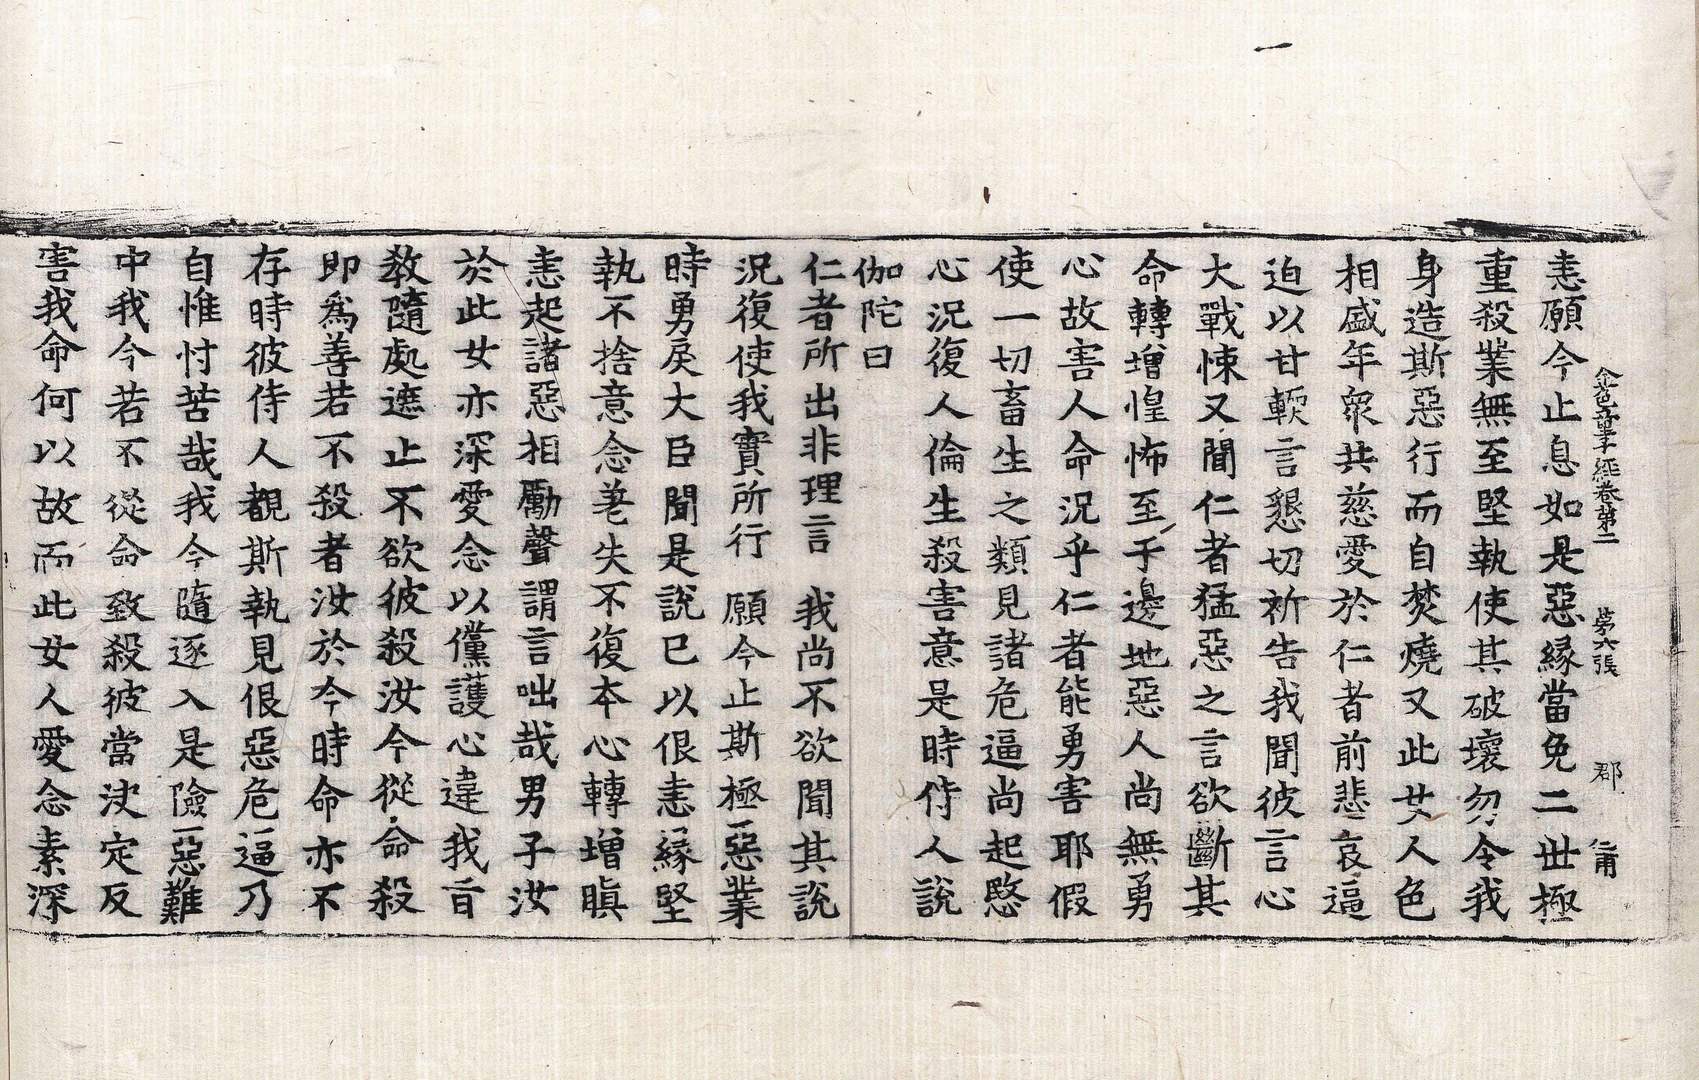 金色童子經卷第二 第六張 郡 仁甫
恚願今止息如是惡緣當免二世極
重殺業無至堅執使其破壞勿令我
身造斯惡行而自焚燒又此女人色
相盛年衆共慈愛於仁者前悲哀逼
迫以甘軟言懇切祈告我聞彼言心
大戰悚又聞仁者猛惡之言欲斷其
命轉增惶怖至于邊地惡人尚無勇
心故害人命況乎仁者能勇害耶假
使一切畜生之類見諸危逼尚起愍
心況復人倫生殺害意是時侍人說
伽陀曰
仁者所出非理言　我尚不欲聞其說
況復使我實所行　願今止斯極惡業
時勇戾大臣聞是說已以佷恚緣堅
執不捨意念差失不復本心轉增瞋
恚起諸惡相勵聲謂言咄哉男子汝
於此女亦深愛念以儻護心違我旨
教隨處遮止不欲彼殺汝今從命殺
即爲善若不殺者汝於今時命亦不
存時彼侍人覩斯執見佷惡危逼乃
自惟忖苦哉我今隨逐入是險惡難
中我今若不從命致殺彼當決定反
害我命何以故而此女人愛念素深